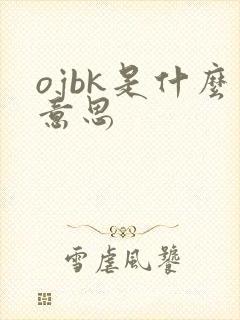 ojbk是什麼
意思
雪虐風饕